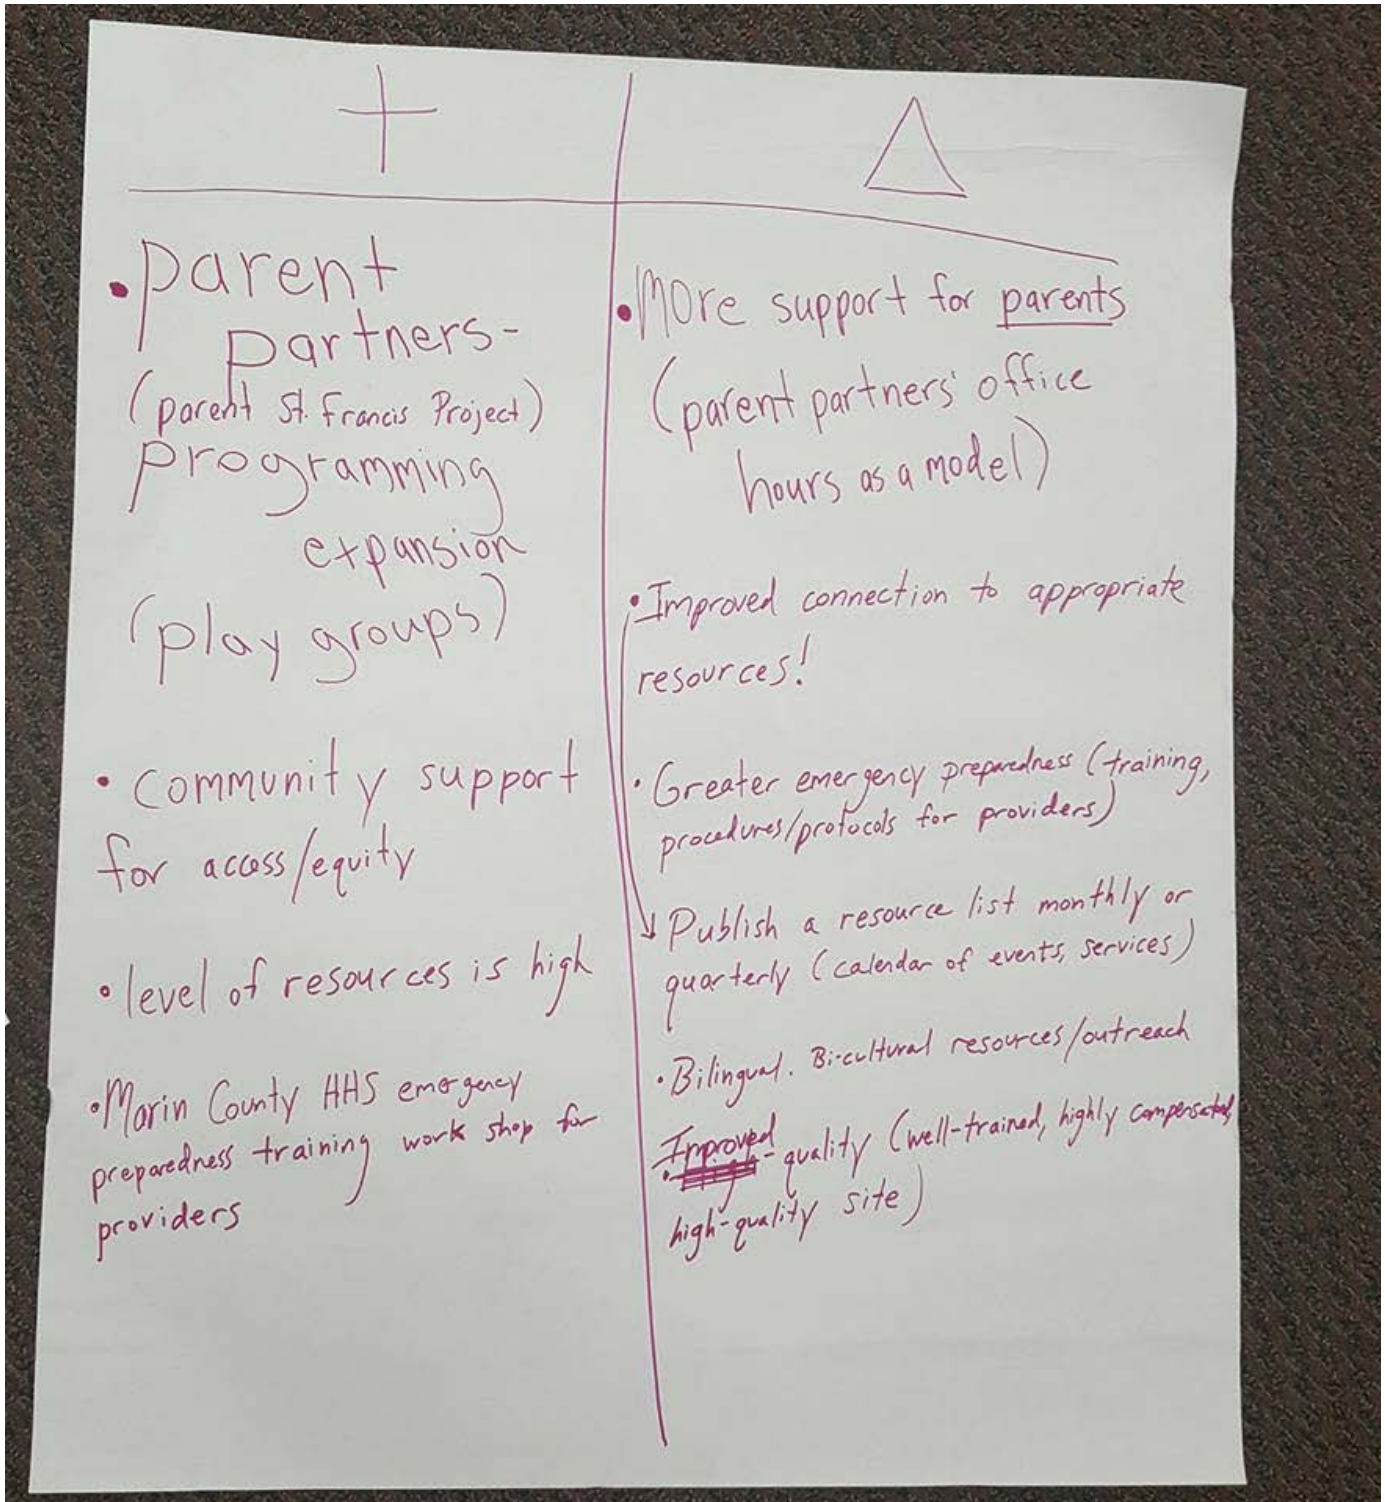 +
• Parent
partners-
(parent St. Francis Project)
programming
expansion
(play groups)
• Community support
for access/equity
• level of resources is high
• Marin County HHS emergency
preparedness training work shop for
providers
Δ
• More support for parents
(parent partners' office
hours as a model)
• Improved connection to appropriate
resources!
• Greater emergency preparedness (training,
procedures/protocols for providers)
Publish a resource list monthly or
quarterly (calendar of events, services)
• Bilingual. Bi-cultural resources/outreach
• Improved - quality (well-trained, highly compensated,
high-quality site)